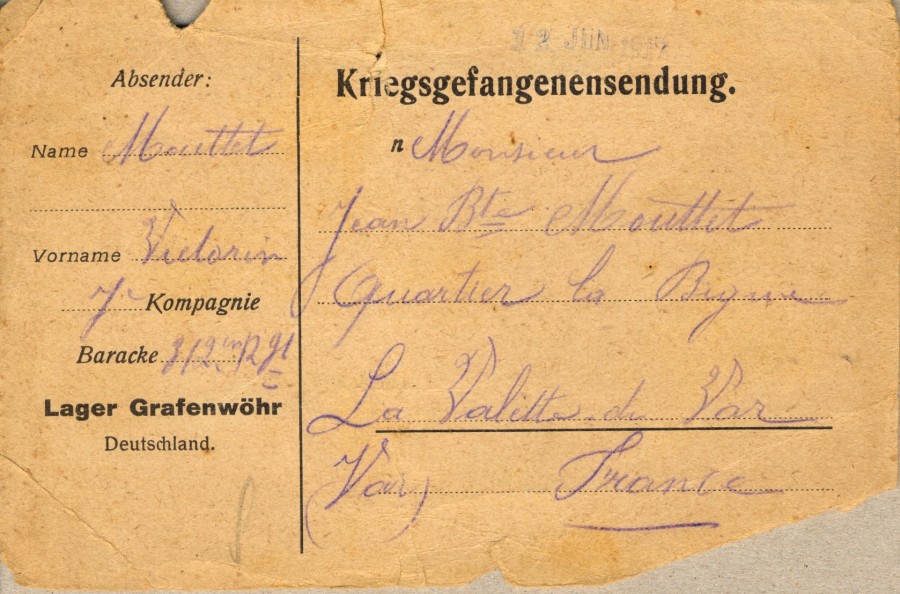 Absender:
Name Mouttet
Vorname Victorin
7e Kompagnie
Baracke
Lager Grafenwöhr
Deutschland.
JUIN
Kriegsgefangenensendung.
n Monsieur
Jean Bte Mouttet
Quartier la
La Valette du Var
(Var) France